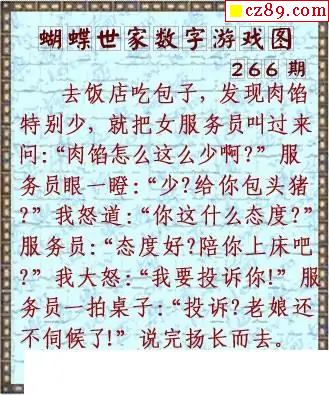 cz89.com
蝴蝶世家数字游戏图
266 期
去饭店吃包子，发现肉馅
特别少，就把女服务员叫过来
问:“肉馅怎么这么少啊?” 服
务员眼一瞪:“少?给你包头猪
?” 我怒道:“你这什么态度?”
服务员:“态度好?陪你上床吧
?” 我大怒:“我要投诉你!” 服
务员一拍桌子:“投诉?老娘还
不伺候了!” 说完扬长而去。